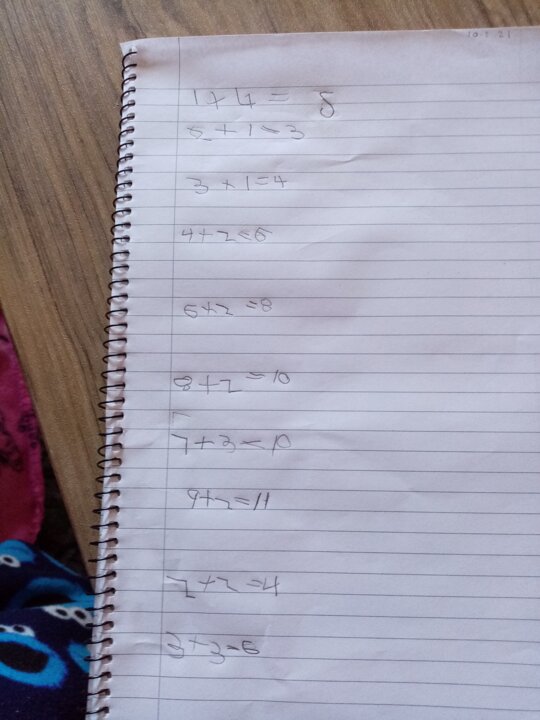 10 2 21
1 + 4 = 5
2 + 1 = 3
3 + 1 = 4
4 + 2 = 6
6 + 2 = 8
8 + 2 = 10
7 + 3 = 10
9 + 2 = 11
2 + 2 = 4
3 + 3 = 6